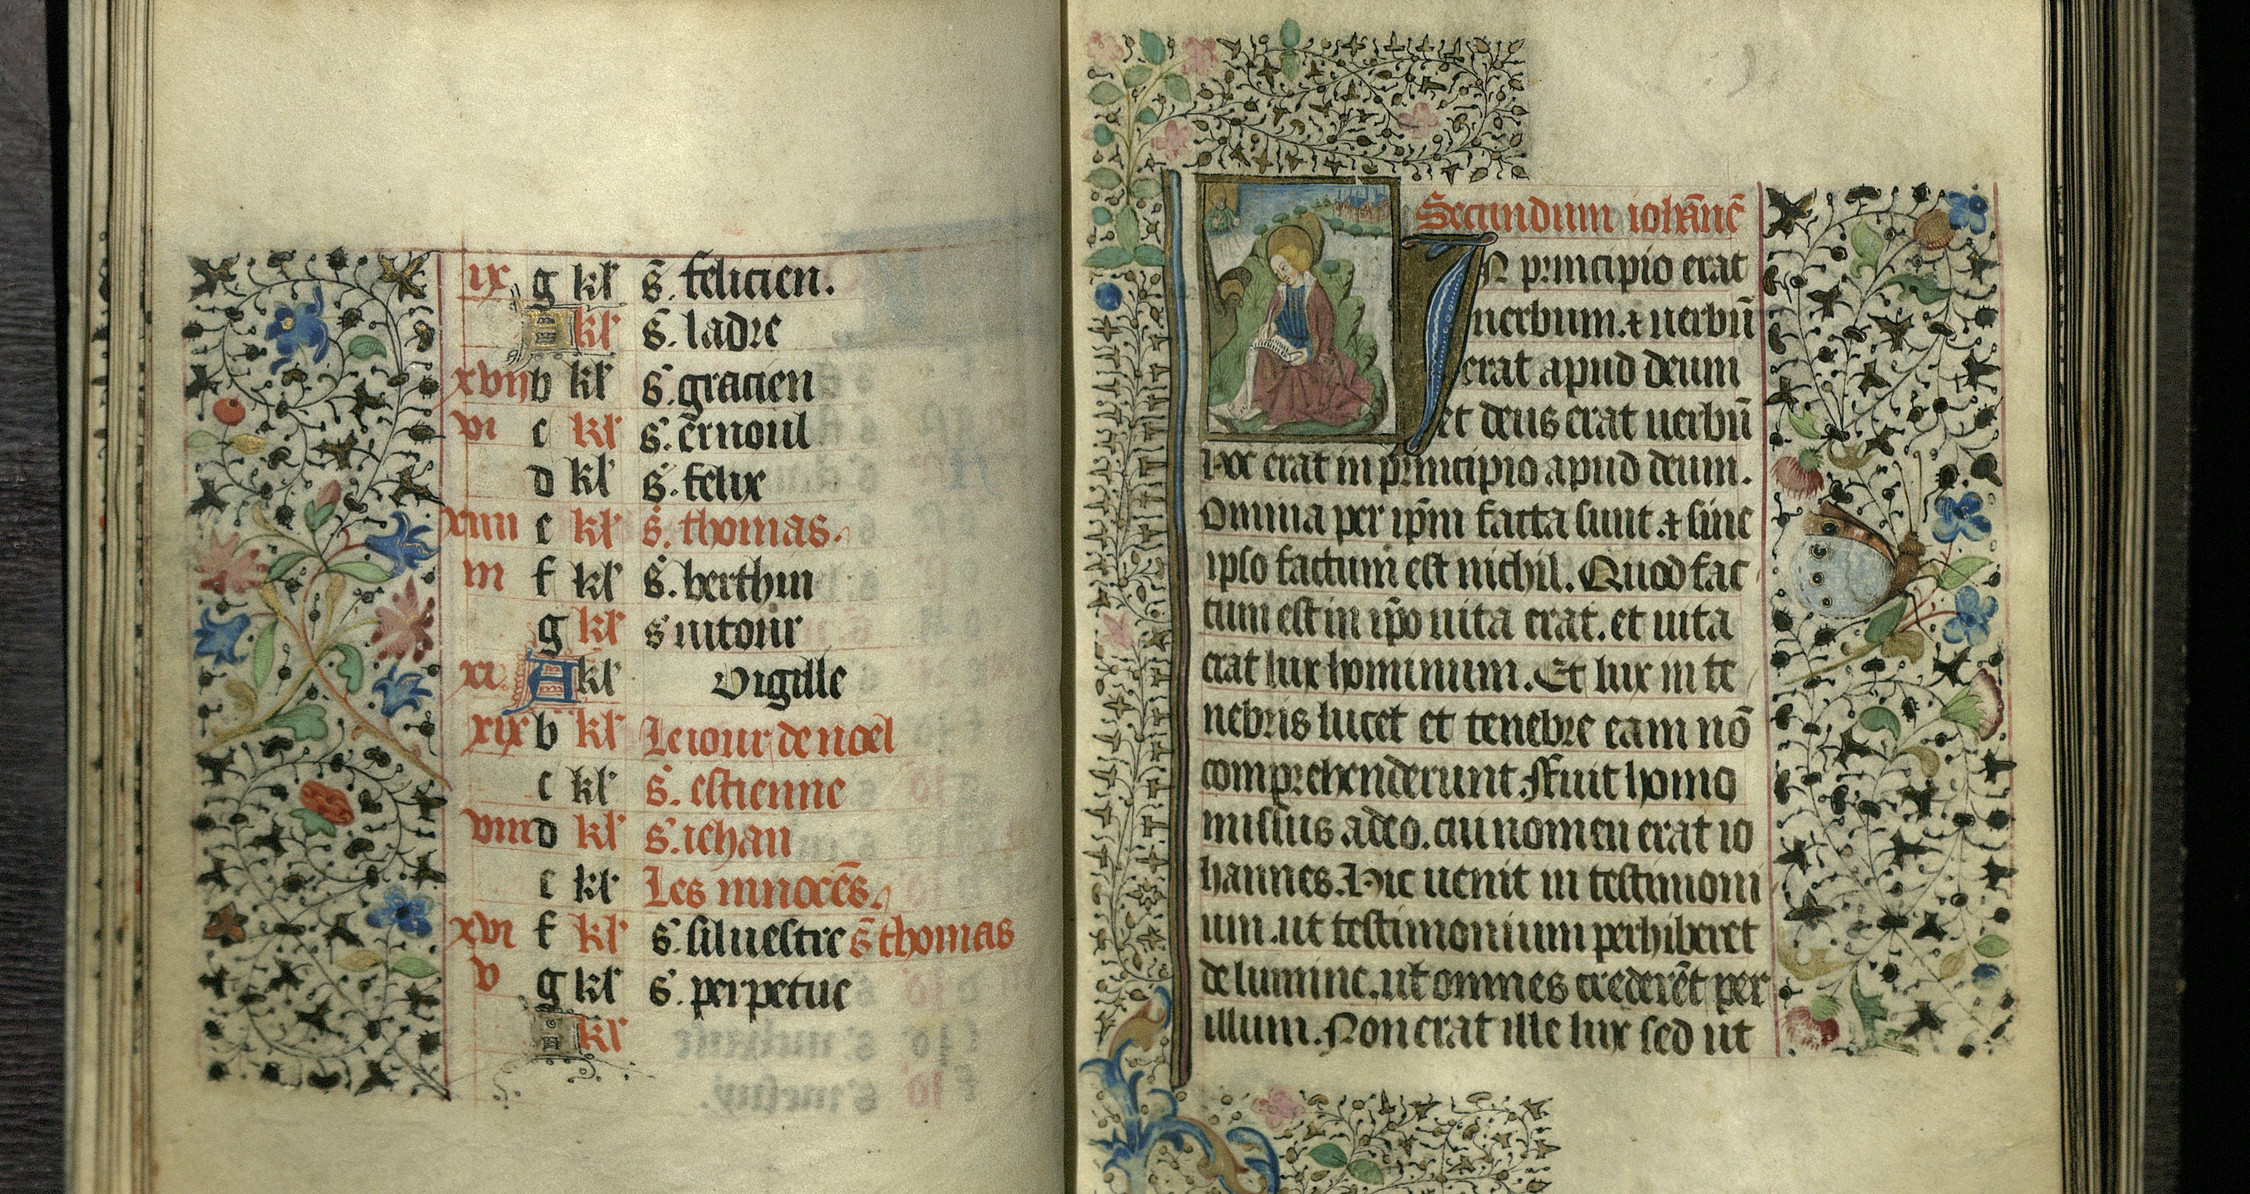 ix g kl' s̄. felicien.
A kl' s̄. ladre
xvii b kl' s̄. gracien
vi c kl' s̄. ernoul
d kl' s̄. felix
xiiii e kl' s̄. thomas.
iii f kl' s̄. berthin
g kl' s uitoir
xi. A kl' Vigille
xix b kl' Le iour de noel
c kl' s̄. estienne
viii d kl' s̄. iehan
e kl' Les innocēs.
xvi f kl' s̄. siluestre s̄ thomas
v g kl' s̄. perpetue
A kl'
Secundum iohānē
IN principio erat
uerbum. ⁊ uerbū
erat apud deum
et deus erat uerbū
hoc erat in principio apud deum.
Omnia per ip̄m facta sunt. ⁊ sine
ipso factum est nichil. Quod fac
tum est in ip̄o uita erat. et uita
erat lux hominum. Et lux in te
nebris lucet et tenebre eam nō
comprehenderunt. Fuit homo
missus a deo. cui nomen erat io
hannes. Hic uenit in testimoni
um. ut testimonium perhiberet
de lumine. ut omnes crederēt per
illum. Non erat ille lux sed ut